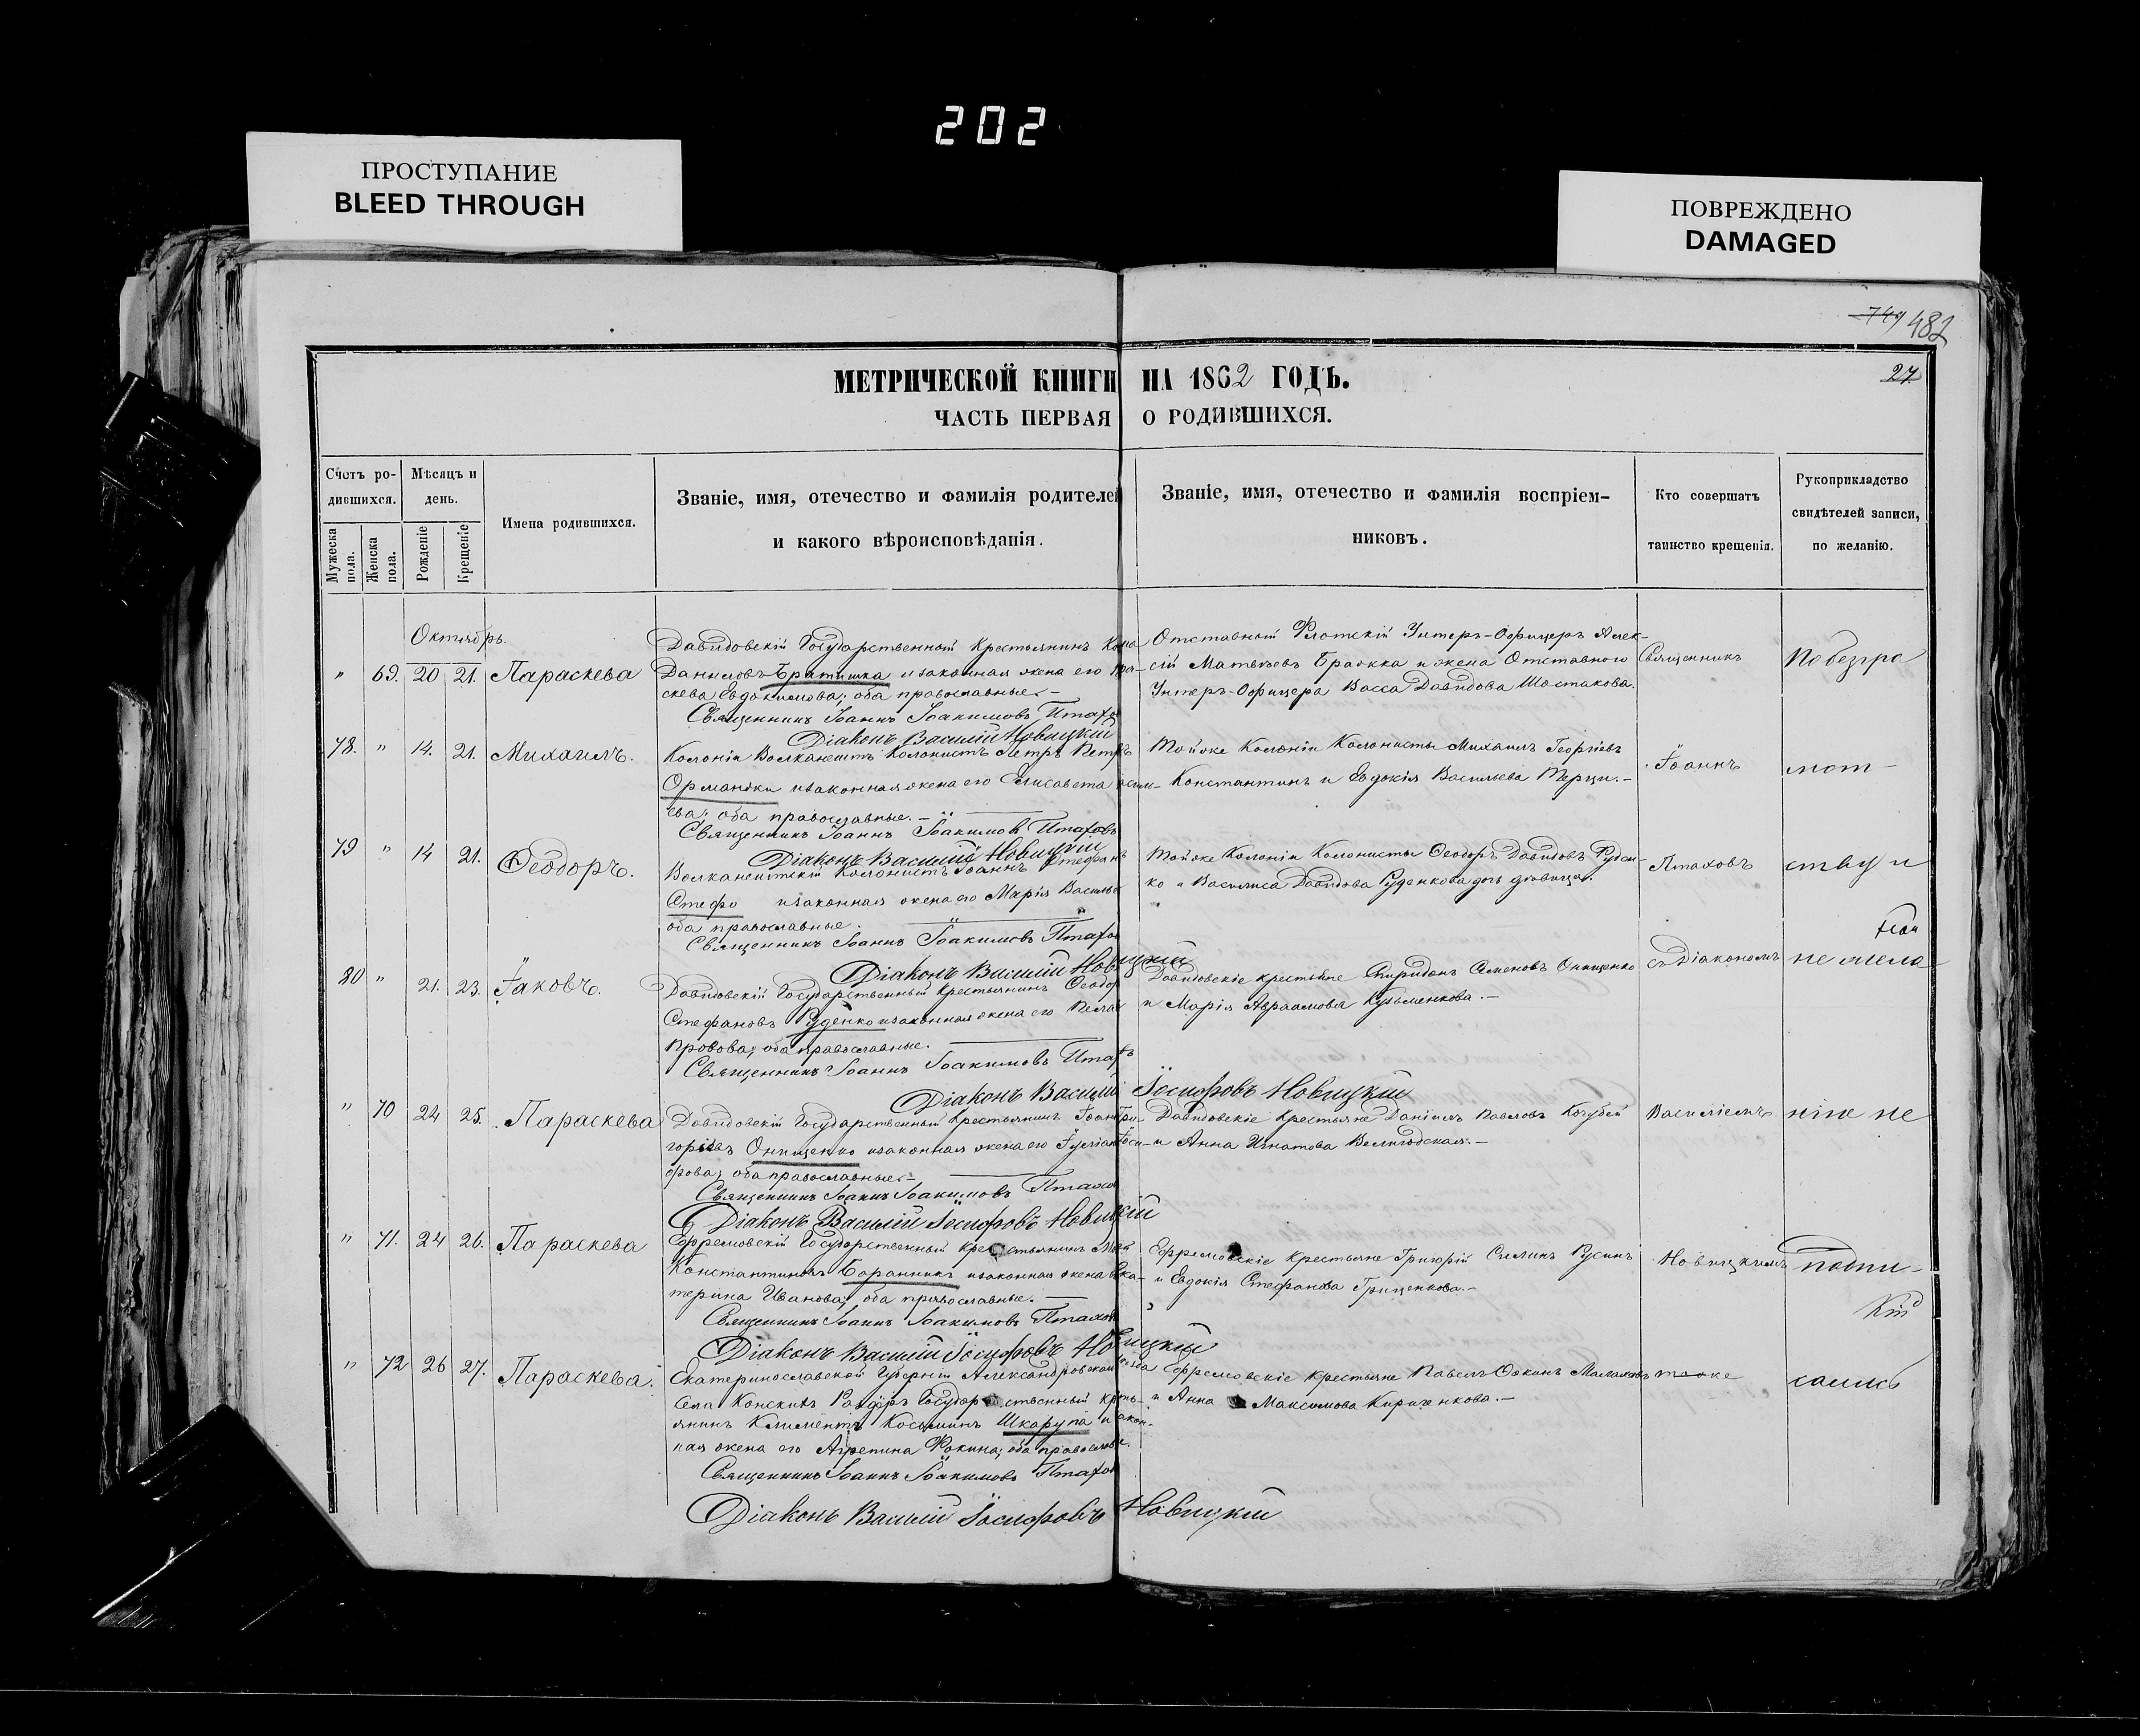 202
ПРОСТУПАНИЕ
BLEED THROUGH
ПОВРЕЖДЕНО
DAMAGED
749 482
27
МЕТРИЧЕСКОЙ КНИГИ НА 1862 ГОДЪ.
ЧАСТЬ ПЕРВАЯ О РОДИВШИХСЯ.
Счетъ ро-
дившихся.
Мужеска пола.
Женска пола.
Мѣсяцъ и
день.
Рожденіе
Крещеніе
Имена родившихся.
Званіе, имя, отечество и фамилія родителей
и какого вѣроисповѣданія.
Званіе, имя, отечество и фамилія воспріем-
никовъ.
Кто совершатъ
таинство крещенія.
Рукоприкладство
свидѣтелей записи,
по желанію.
Октябрь.
" 69. 20 21. Параскева
Давидовскій Государственный Крестьянинъ
Даниловъ Братишка и законная жена его Пара-
скева Евдокимова; оба православные.
Священникъ Іоаннъ Іоакимовъ Птахо
Діаконъ Василій Новицкій
Отставной Флотскій Унтеръ-Офицеръ Алек-
сій Матвѣевъ и жена Отставного
Унтеръ-Офицера Васса Давидова Шостакова.
Священникъ
По безгра
78. " 14. 21. Михаилъ.
Колоніи Волканештъ Колонистъ Петръ Петръ
Орманжи и законная жена его Елисавета
ева; оба православные.
Священникъ Іоаннъ Іоакимовъ Птаховъ
Діаконъ Василій Новицкій
Тойже Колоніи Колонисты Михаилъ Георгіевъ
Константинъ и Евдокія Васильева Терзи.
Іоаннъ
мот-
79 " 14 21. Ѳеодоръ.
Волканештскій Колонистъ Іоаннъ Стефанъ
Стефо и законная жена его Марія Василье
оба православные.
Священникъ Іоаннъ Іоакимовъ Птахов
Діаконъ Василій Новицкій
Тойже Колоніи Колонисты Ѳеодоръ Давидовъ Руден-
ко и Василиса Давидова Руденкова дочь дѣвица.
Птаховъ
ству и
80 " 21. 23. Іаковъ.
Давидовскій Государственный Крестьянинъ Ѳеодоръ
Стефановъ Руденко и законная жена его Пелаг
Провова; оба православные.
Священникъ Іоаннъ Іоакимовъ Птахъ
Діаконъ Василій Іосифовъ Новицкій
Давидовскіе крестьяне Спиридонъ Семеновъ Онищенко
и Марія Авраамова Кузьменкова.
съ Діакономъ
не жела
" 70 24 25. Параскева
Давидовскій Государственный Крестьянинъ Іоаннъ Гри-
горіевъ Онищенко и законная жена его Іуліанія Іоси-
фова; оба православные.
Священникъ Іоаннъ Іоакимовъ Птахов
Діаконъ Василій Іосифовъ Новицкій
Давидовскіе Крестьяне Даніилъ Павловъ Кочубей
и Анна Игнатова Велигодская.
Василіемъ
ніе не
" 71. 24 26. Параскева
Ефремовскій Государственный крестьянинъ
Константиновъ Баранникъ и законная жена Ека-
терина Иванова; оба православные.
Священникъ Іоаннъ Іоакимовъ Птахов
Діаконъ Василій Іосифовъ Новицкій
Ефремовскіе крестьяне Григорій Силинъ Русинъ
и Евдокія Стефанова Грищенкова.
Новицкимъ
подпи-
" 72 26 27. Параскева.
Екатеринославской Губерніи Александровскаго уѣзда
Села Конскихъ Раздоръ Государственный кресть-
янинъ Климентъ Космминъ Шкарупа и закон-
ная жена его Агрепина Фокина; оба православные.
Священникъ Іоаннъ Іоакимовъ Птахов
Діаконъ Василій Іосифовъ Новицкій
Ефремовскіе крестьяне Павелъ Фокинъ
и Анна Максимова Кириченкова.
тоже
сались